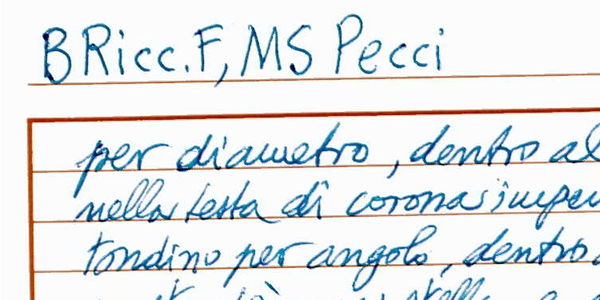 B Ricc. F, MS Pecci
per diametro, dentro al
nella testa di corona
tondino per angolo, dentro